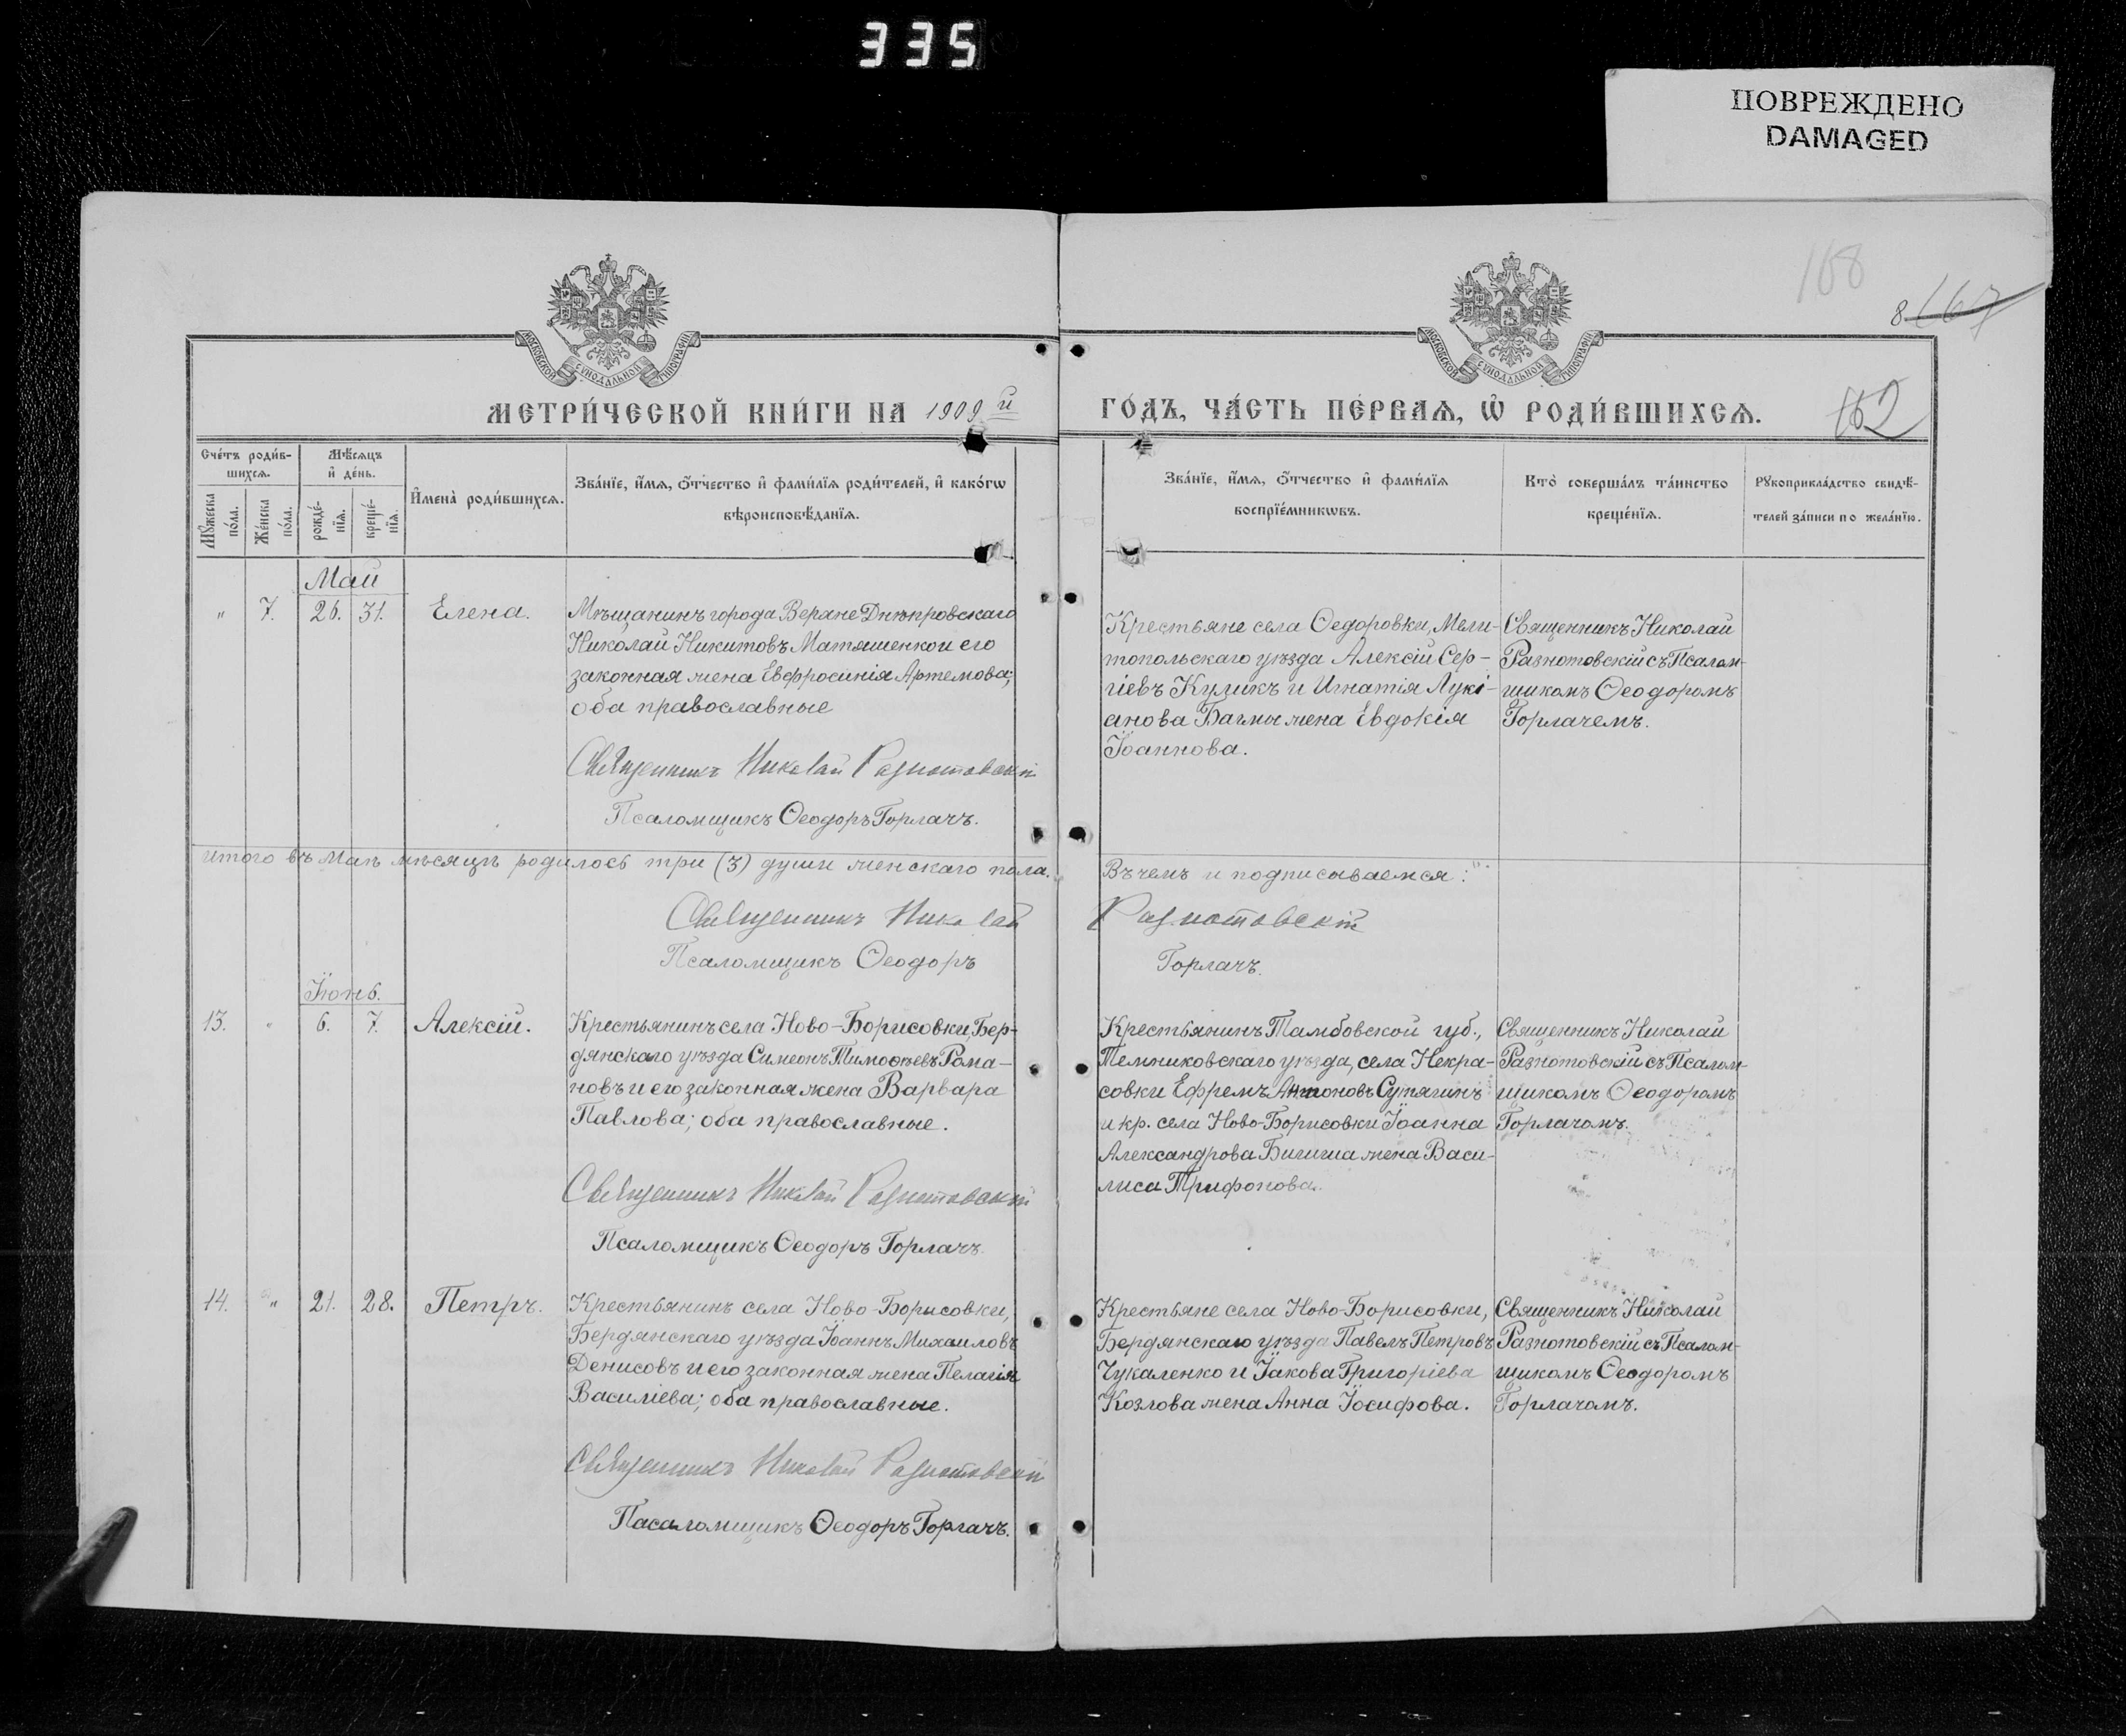 335
ПОВРЕЖДЕНО
DAMAGED
168
8 167
162
МОСКОВСКОЙ СѴНОДАЛЬНОЙ ТИПОГРАФІИ
МОСКОВСКОЙ СѴНОДАЛЬНОЙ ТИПОГРАФІИ
МЕТРИ́ЧЕСКОЙ КНИ́ГИ НА 1909 й
ГО́ДЪ, ЧА́СТЬ ПЕ́РВАѦ, Ѡ҆ РОДИ́ВШИХСѦ.
Сче́тъ роди́в-
шихсѧ.
Мѣ́сѧцъ
и҆ де́нь.
Мꙋ́жеска
по́ла.
Же́нска
по́ла.
рожде́-
нїѧ.
креще́-
нїѧ.
И҆мена̀ роди́вшихсѧ.
Зва́нїе, и҆́мѧ, ѻ҆́тчество и҆ фами́лїѧ роди́телей, и҆ како́гѡ
вѣроисповѣ́данїѧ.
Зва́нїе, и҆́мѧ, ѻ҆́тчество и҆ фами́лїѧ
воспрїе́мникѡвъ.
Кто̀ соверша́лъ та́инство
креще́нїѧ.
Рꙋкоприкла́дство свидѣ́-
телей за́писи по жела́нїю.
Май
" 7. 26. 31. Елена.
Мѣщанинъ города Верхне Днѣпровскаго
Николай Никитовъ Матяшенко и его
законная жена Евфросинія Артемова;
оба православные
Священникъ Николай Разнотовскій
Псаломщикъ Ѳеодоръ Горлачъ.
Крестьяне села Ѳедоровки, Мели-
топольскаго уѣзда Алексій Сер-
гіевъ Куликъ и Игнатія Лукі-
анова Багмы жена Евдокія
Іоаннова.
Священникъ Николай
Разнотовскій съ Псалом-
щикомъ Ѳеодоромъ
Горлачемъ.
Итого въ маѣ мѣсяцѣ родилось три (3) души женскаго пола.
Въ чемъ и подписываемся:
Священникъ Николай
Разнотовскій
Псаломщикъ Ѳеодоръ
Горлачъ.
Іюнь.
13. " 6. 7. Алексій.
Крестьянинъ села Ново-Борисовки, Бер-
дянскаго уѣзда Симеонъ Тимоѳеевъ Рома-
новъ и его законная жена Варвара
Павлова; оба православные.
Священникъ Николай Разнотовскій
Псаломщикъ Ѳеодоръ Горлачъ.
Крестьянинъ Тамбовской губ.,
Темниковскаго уѣзда, села Некра-
совки Ефремъ Антоновъ Сутягинъ
и кр. села Ново-Борисовки Іоанна
Александрова Бигича жена Васи-
лиса Трифонова.
Священникъ Николай
Разнотовскій съ Псалом-
щикомъ Ѳеодоромъ
Горлачомъ.
14. " 21. 28. Петръ.
Крестьянинъ села Ново-Борисовки,
Бердянскаго уѣзда Іоаннъ Михаиловъ
Денисовъ и его законная жена Пелагія
Василіева; оба православные.
Священникъ Николай Разнотовскій
Пасаломщикъ Ѳеодоръ Горлачъ.
Крестьяне села Ново-Борисовки,
Бердянскаго уѣзда Павелъ Петровъ
Чукаленко и Іакова Григоріева
Козлова жена Анна Іосифова.
Священникъ Николай
Разнотовскій съ Псалом-
щикомъ Ѳеодоромъ
Горлачомъ.